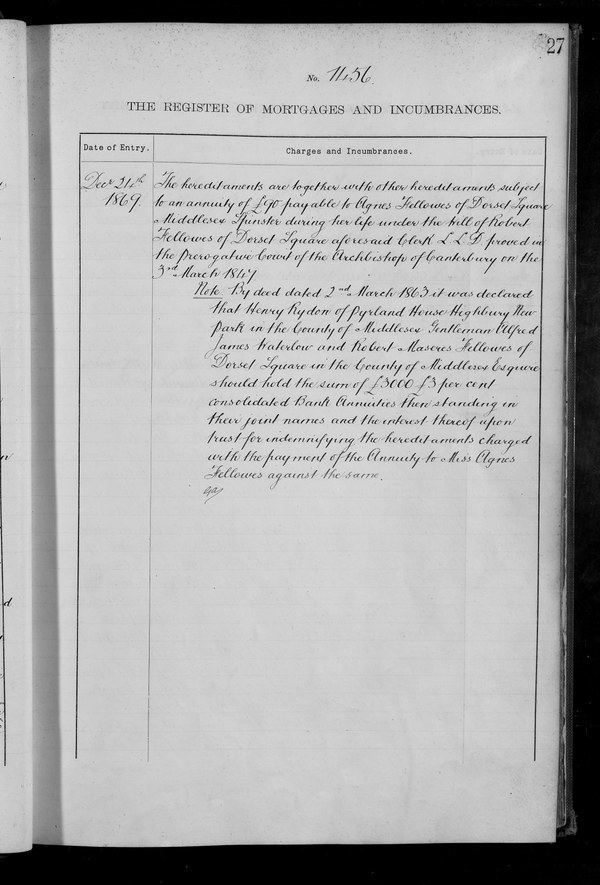 27
No. 1456.
THE REGISTER OF MORTGAGES AND INCUMBRANCES.
Date of Entry.
Charges and Incumbrances.
Decr 24th
1869
The hereditaments are together with other hereditaments subject
to an annuity of £90 payable to Agnes Fellowes of Dorset Square
Middlesex Spinster during her life under the will of Robert
Fellowes of Dorset Square aforesaid Clerk L.L.D. proved in
the prerogative Court of the Archbishop of Canterbury on the
3rd March 1847
Note. By deed dated 2nd March 1863 it was declared
that Henry Rydon of Pyrland House Highbury New
Park in the County of Middlesex Gentleman Alfred
James Waterlow and Robert Maseres Fellowes of
Dorset Square in the County of Middlesex Esquire
should hold the sum of £3000 £3 per cent
consolidated Bank Annuities then standing in
their joint names and the interest thereof upon
trust for indemnifying the hereditaments charged
with the payment of the Annuity to Miss Agnes
Fellowes against the same.